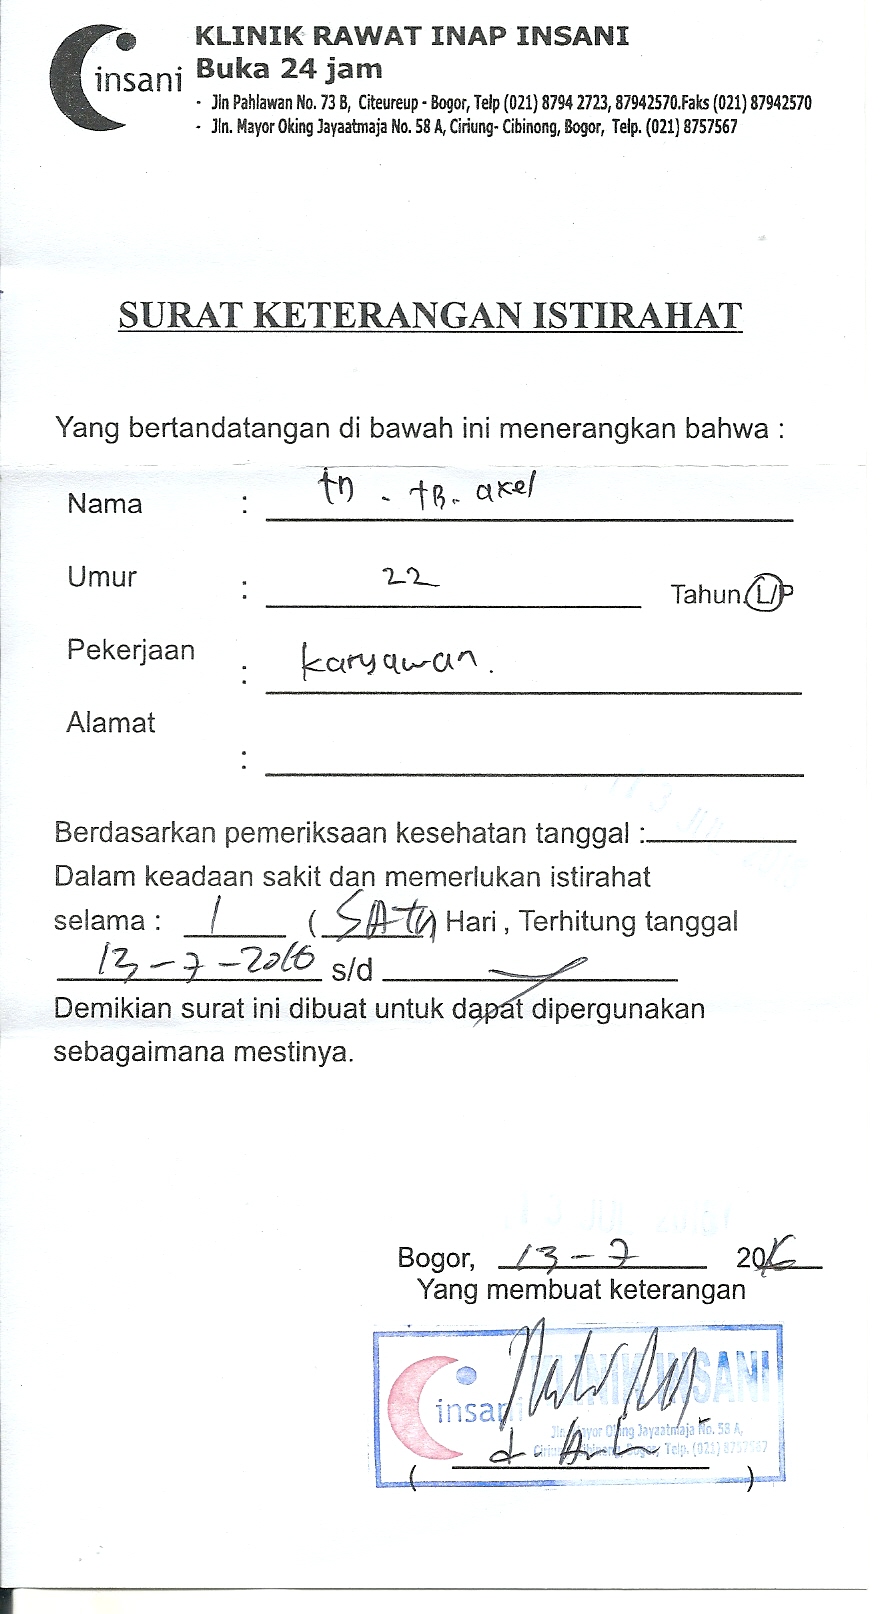 insani
KLINIK RAWAT INAP INSANI
Buka 24 jam
- Jln Pahlawan No. 73 B, Citeureup - Bogor, Telp (021) 8794 2723, 87942570.Faks (021) 87942570
- Jln. Mayor Oking Jayaatmaja No. 58 A, Ciriung- Cibinong, Bogor, Telp. (021) 8757567
SURAT KETERANGAN ISTIRAHAT
Yang bertandatangan di bawah ini menerangkan bahwa :
Nama : tn . tB. axel
Umur : 22 Tahun.L/P
Pekerjaan : karyawan.
Alamat :
Berdasarkan pemeriksaan kesehatan tanggal :
Dalam keadaan sakit dan memerlukan istirahat
selama : 1 ( SATU ) Hari , Terhitung tanggal
13-7-2016 s/d
Demikian surat ini dibuat untuk dapat dipergunakan
sebagaimana mestinya.
Bogor, 13-7 2016
Yang membuat keterangan
insani KLINIK INSANI
Jln. Mayor Oking Jayaatmaja No. 58 A,
Ciriung- Cibinong, Bogor, Telp. (021) 8757567
( )